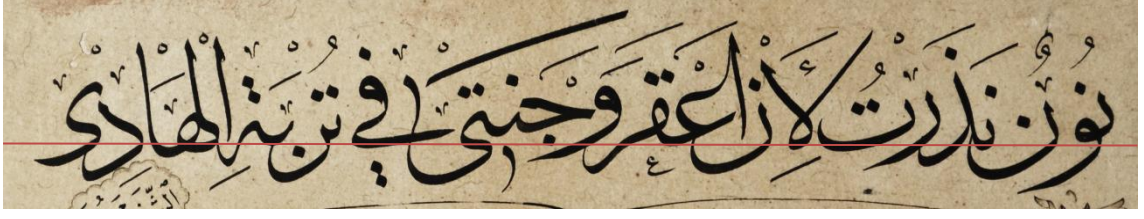 نُونٌ نَذَرْتُ لَاَنْ اُعَفِّرَ وَجْنَتِى فِي تُرْبَةِ الْهَادِى